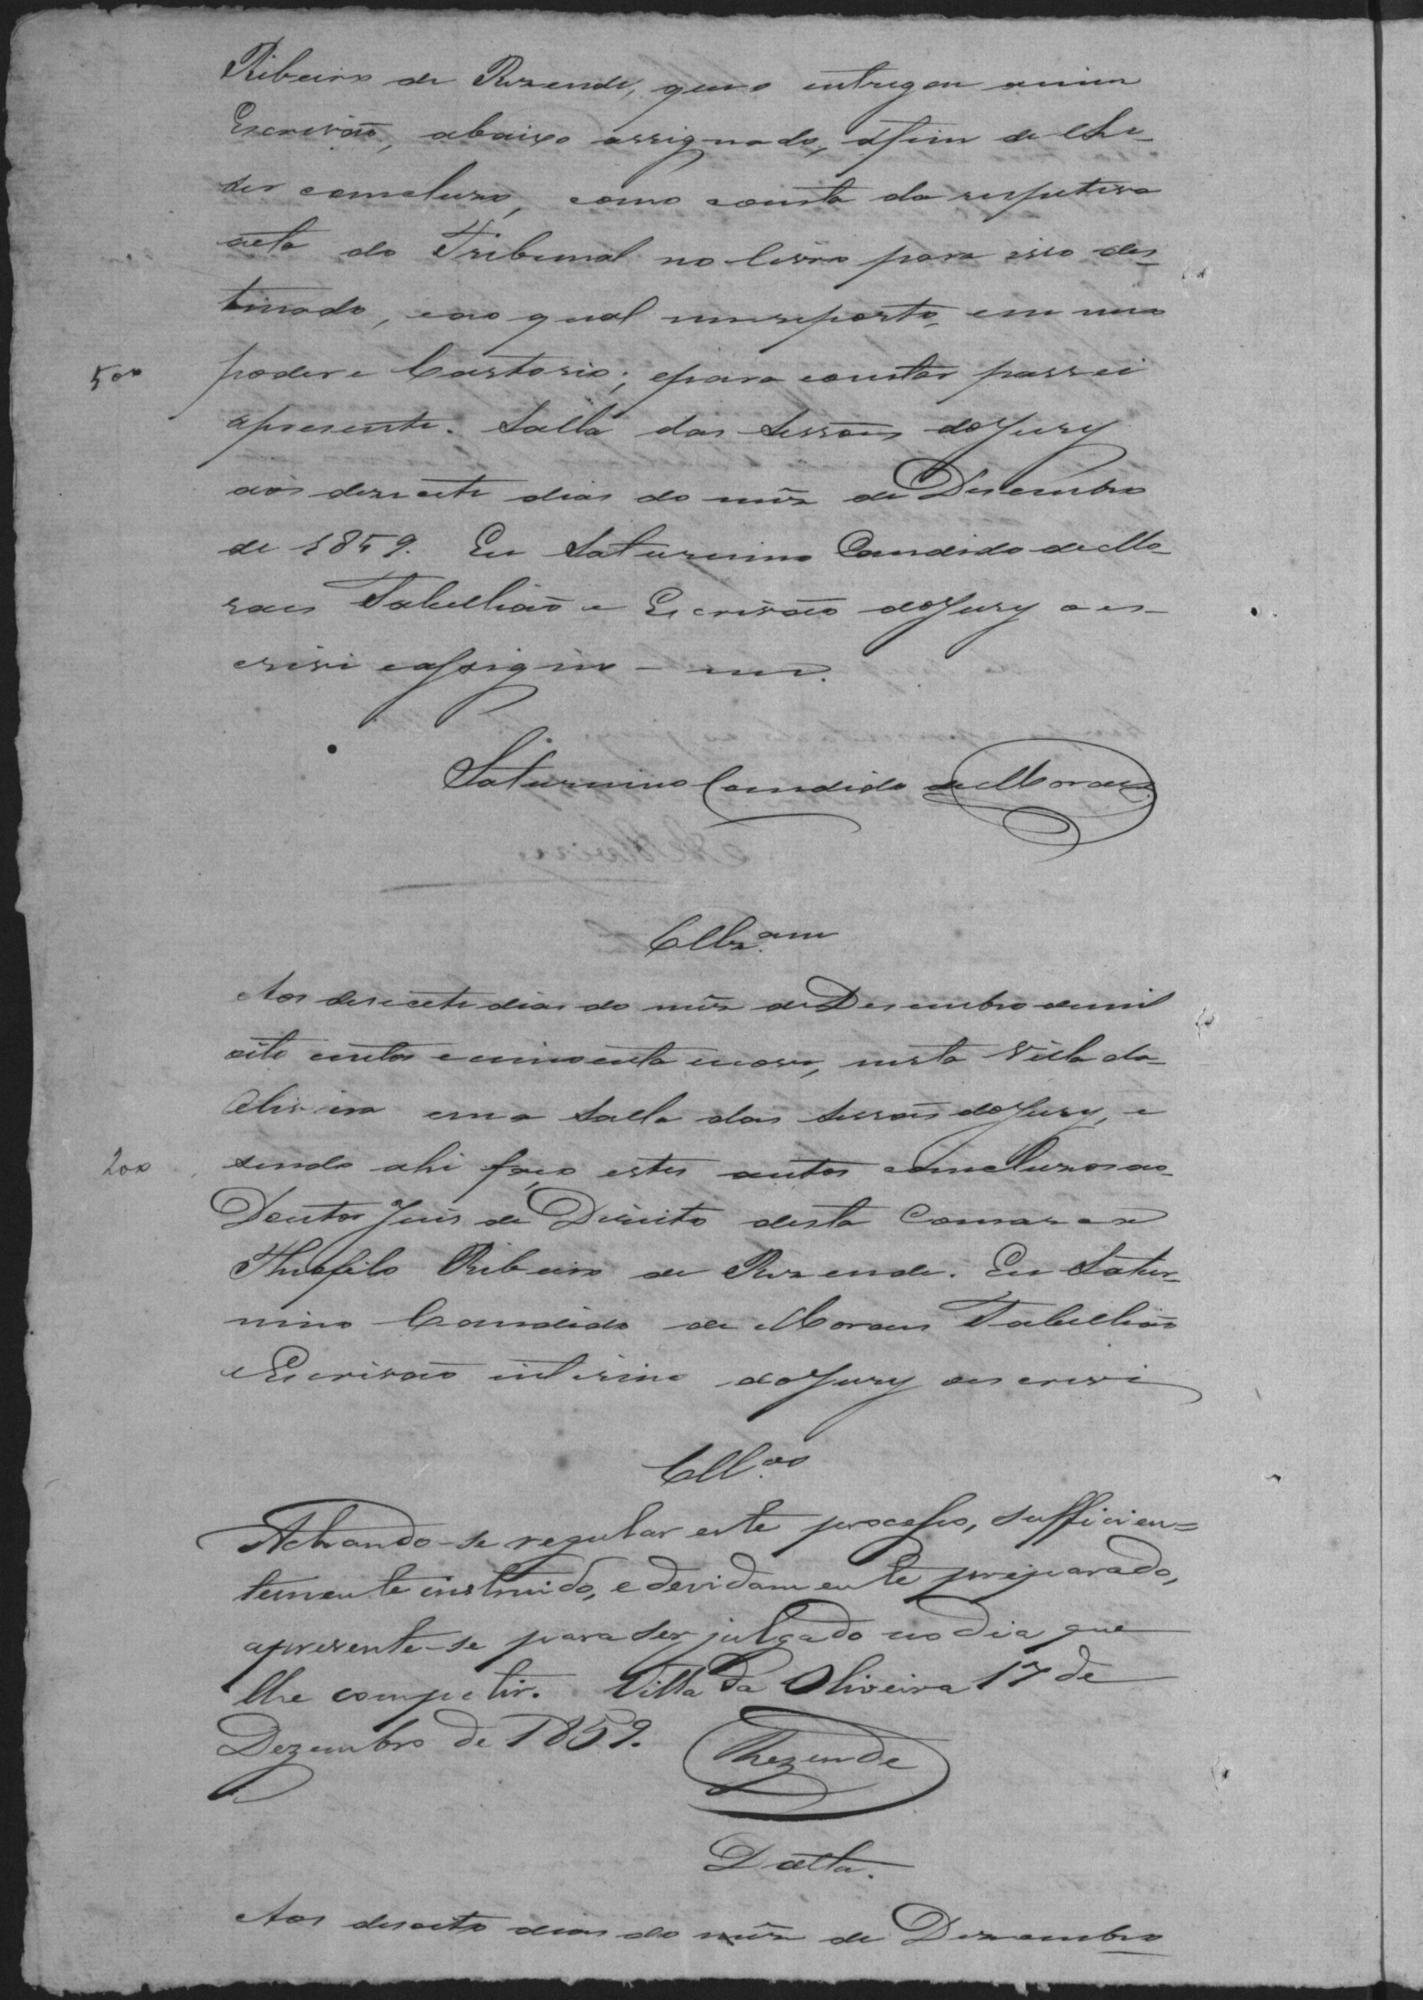 Ribeiro de Rezende, que o entregou a mim
Escrivão, abaixo assignado, afim de lhe
ser concluzo, como consta da respetiva
acta do Tribunal no livro para isso des-
tinado, e ao qual me reporto, em meu
500
poder e Cartorio; e para constar passei
apresente. Salla das Sessões do Jury
aos desecete dias do mês de Desembro
de 1859. Eu Saturnino Candido de Mo-
raes Tabellião e Escrivão do Jury o es-
crivi e assigno-me.
Saturnino Candido de Moraes
Cllz.am
Aos desecete dias do mês de Desembro de mil
oito centos e cincoenta e nove, nesta Villa da
Oliveira em a Salla das Sessões do Jury, e
200
sendo ahi faço estes autos concluzos ao
Doutor Juis de Direito desta Comarca
Theofilo Ribeiro de Rezende. Eu Satur-
nino Candido de Moraes Tabellião
e Escrivão interino do Jury o escrivi
Cll.os
Achando-se regular este processo, sufficien=
temente instruido, e devidamente preparado,
apresente-se para ser julgado no dia que
lhe competir. Villa da Oliveira 17 de
Dezembro de 1859.
Rezende
Datta.
Aos desoito dias do mês de Dezembro